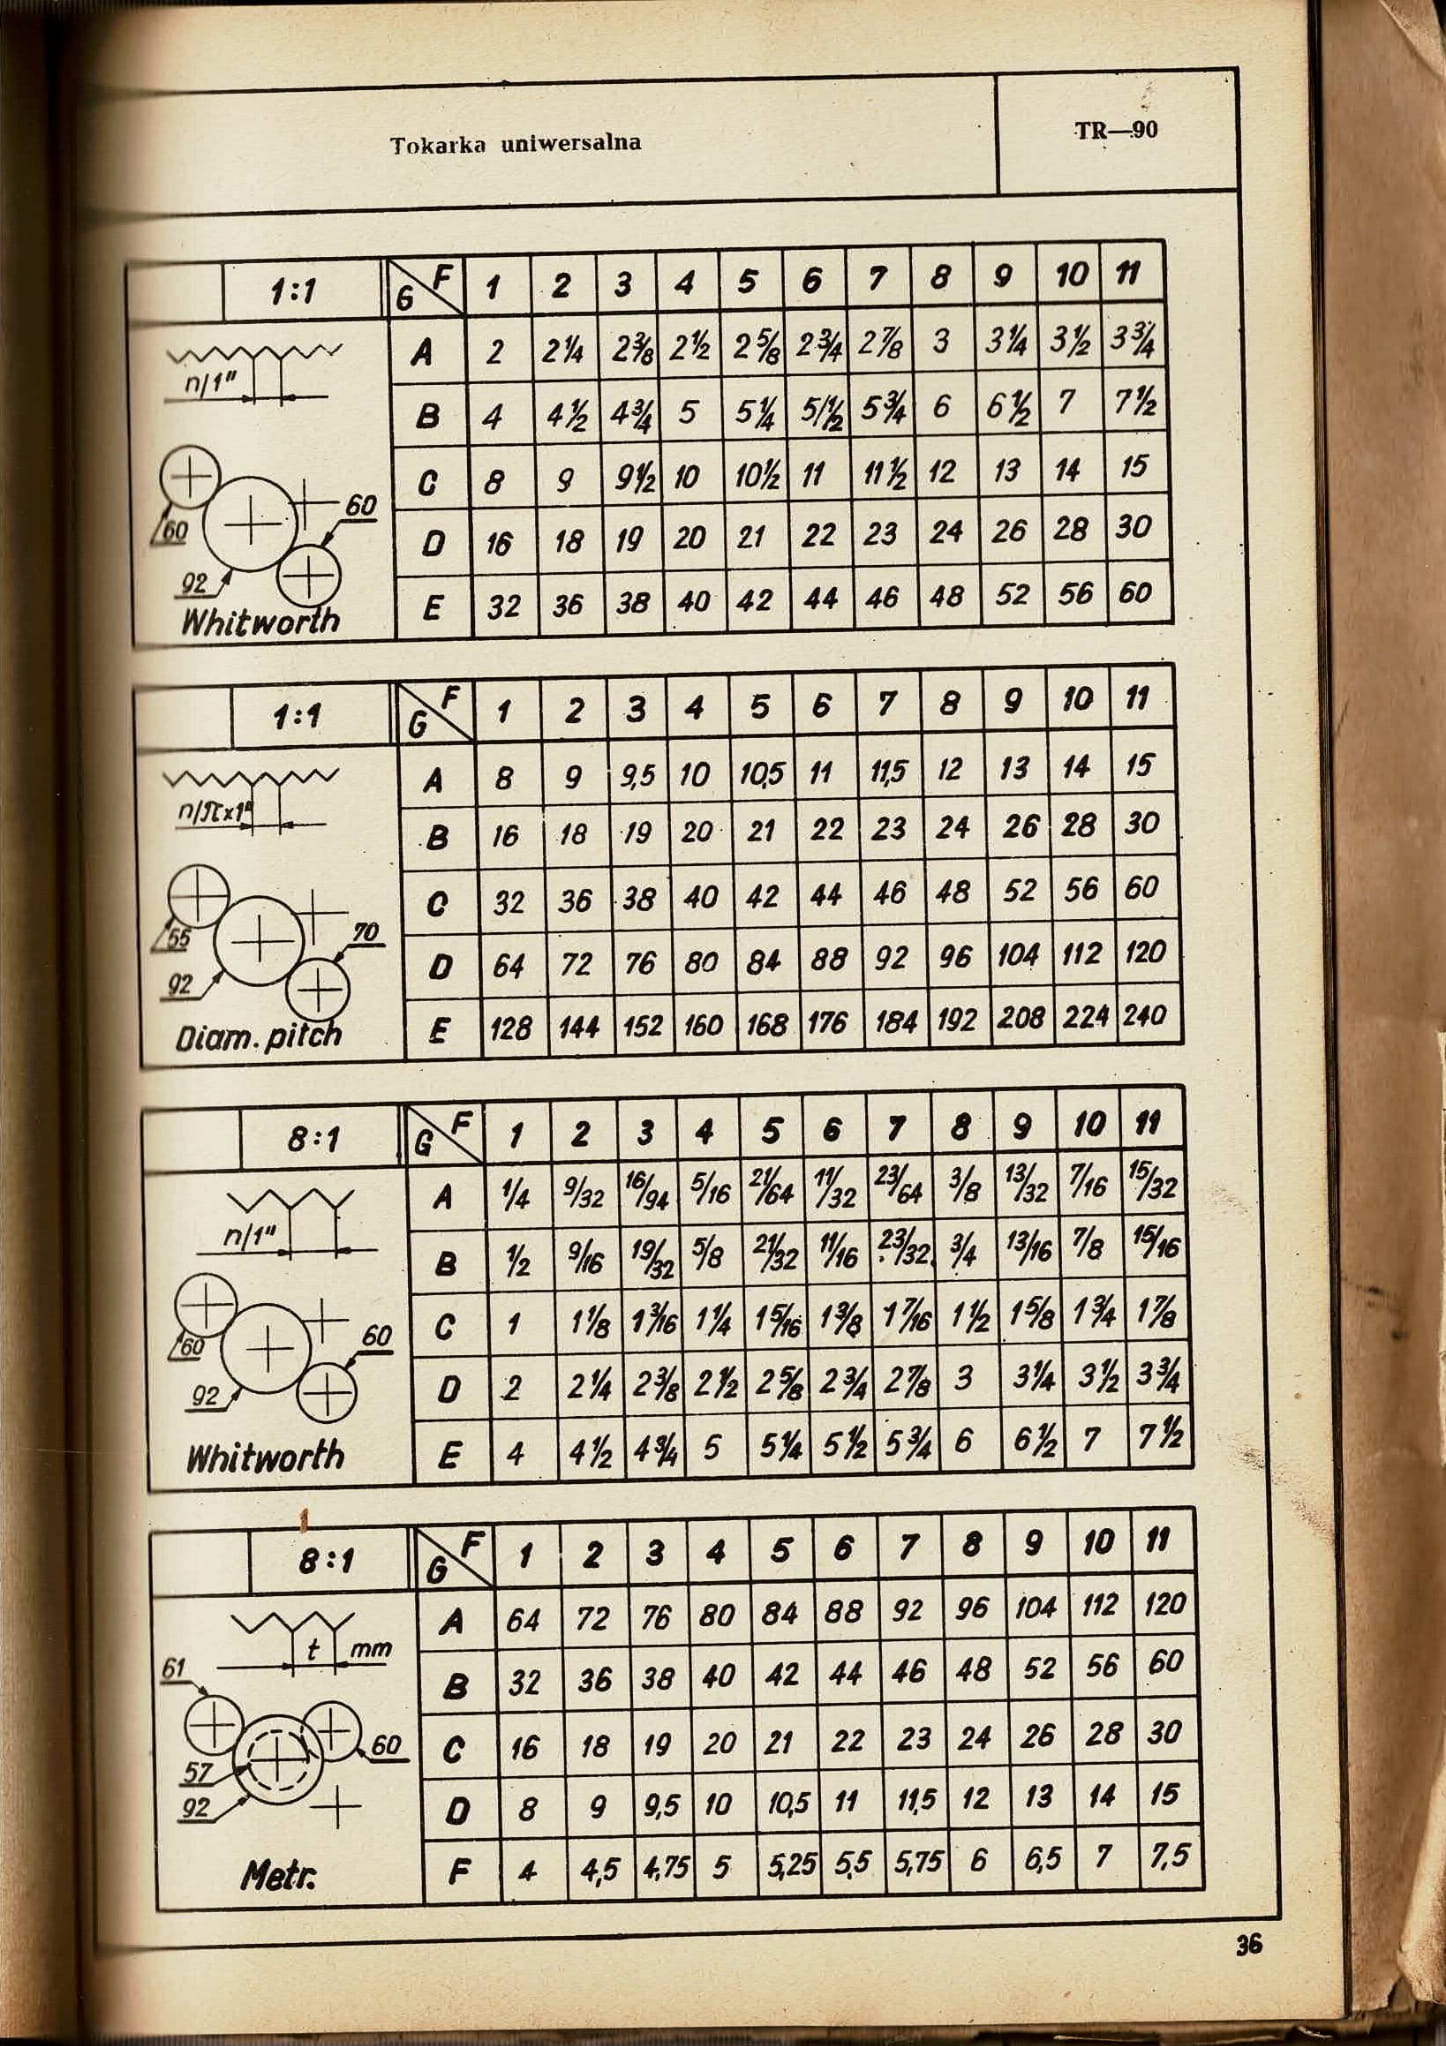 Tokarka uniwersalna
TR—90
1:1 G F 1 2 3 4 5 6 7 8 9 10 11
A 2 2¼ 2⅜ 2½ 2⅝ 2¾ 2⅞ 3 3¼ 3½ 3¾
n/1"
B 4 4½ 4¾ 5 5¼ 5/½ 5¾ 6 6½ 7 7½
C 8 9 9½ 10 10½ 11 11½ 12 13 14 15
60
60
D 16 18 19 20 21 22 23 24 26 28 30
92
E 32 36 38 40 42 44 46 48 52 56 60
Whitworth
1:1 G F 1 2 3 4 5 6 7 8 9 10 11
A 8 9 9,5 10 10,5 11 11,5 12 13 14 15
n/π×1"
B 16 18 19 20 21 22 23 24 26 28 30
C 32 36 38 40 42 44 46 48 52 56 60
55
70
D 64 72 76 80 84 88 92 96 104 112 120
92
E 128 144 152 160 168 176 184 192 208 224 240
Diam. pitch
8:1 G F 1 2 3 4 5 6 7 8 9 10 11
A 1/4 9/32 16/94 5/16 21/64 11/32 23/64 3/8 13/32 7/16 15/32
n/1"
B 1/2 9/16 19/32 5/8 21/32 11/16 23/32 3/4 13/16 7/8 15/16
C 1 1 1/8 1 3/16 1 1/4 1 5/16 1 3/8 1 7/16 1 1/2 1 5/8 1 3/4 1 7/8
60
60
D 2 2¼ 2⅜ 2½ 2⅝ 2¾ 2⅞ 3 3¼ 3½ 3¾
92
E 4 4½ 4¾ 5 5¼ 5½ 5¾ 6 6½ 7 7½
Whitworth
8:1 G F 1 2 3 4 5 6 7 8 9 10 11
A 64 72 76 80 84 88 92 96 104 112 120
t mm
61
B 32 36 38 40 42 44 46 48 52 56 60
C 16 18 19 20 21 22 23 24 26 28 30
60
57
D 8 9 9,5 10 10,5 11 11,5 12 13 14 15
92
F 4 4,5 4,75 5 5,25 5,5 5,75 6 6,5 7 7,5
Metr.
36